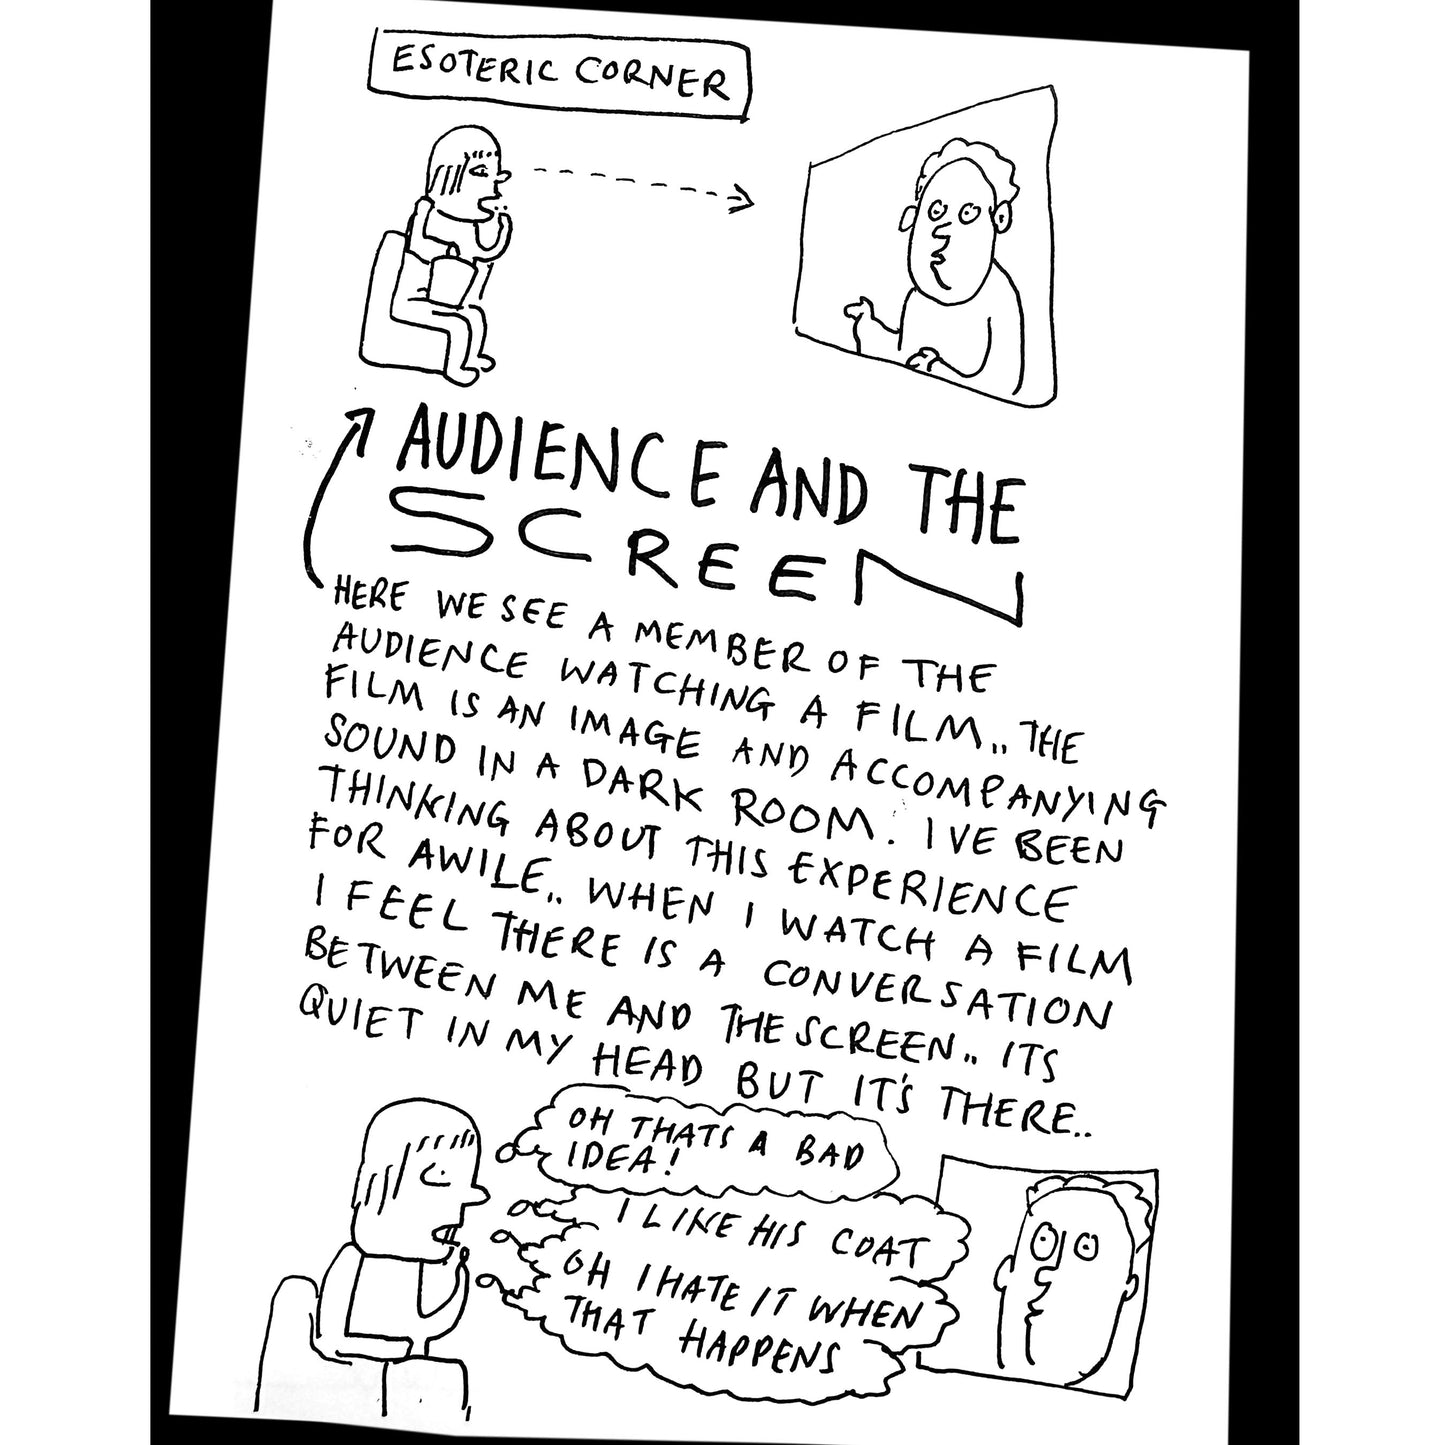 ESOTERIC CORNER
AUDIENCE AND THE
SCREEN
HERE WE SEE A MEMBER OF THE
AUDIENCE WATCHING A FILM.. THE
FILM IS AN IMAGE AND ACCOMPANYING
SOUND IN A DARK ROOM. I'VE BEEN
THINKING ABOUT THIS EXPERIENCE
FOR AWILE.. WHEN I WATCH A FILM
I FEEL THERE IS A CONVERSATION
BETWEEN ME AND THE SCREEN.. ITS
QUIET IN MY HEAD BUT IT'S THERE..
OH THATS A BAD
IDEA!
I LIKE HIS COAT
OH I HATE IT WHEN
THAT HAPPENS